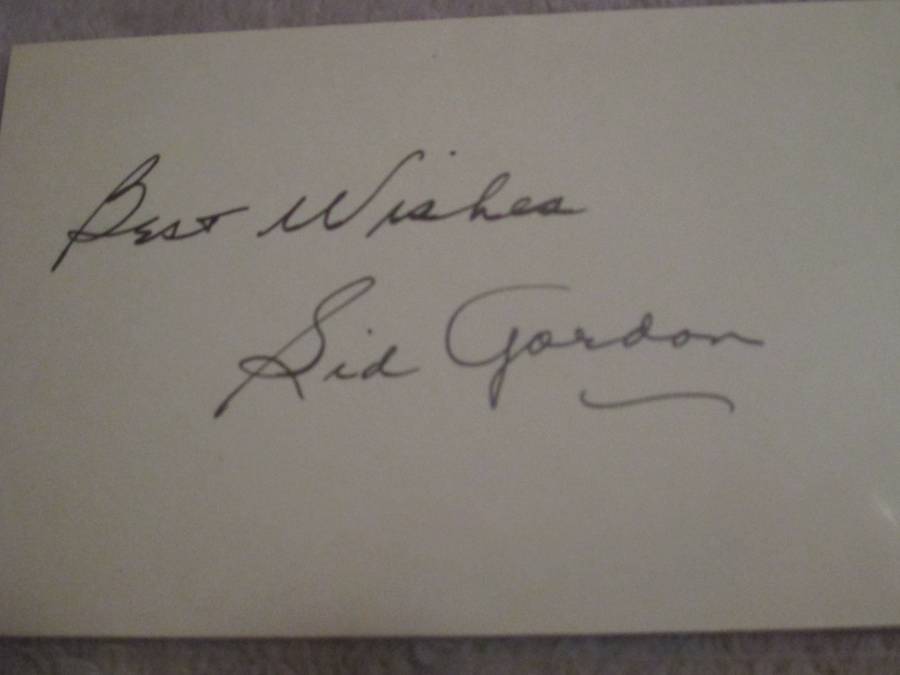 Best Wishes
Sid Gordon